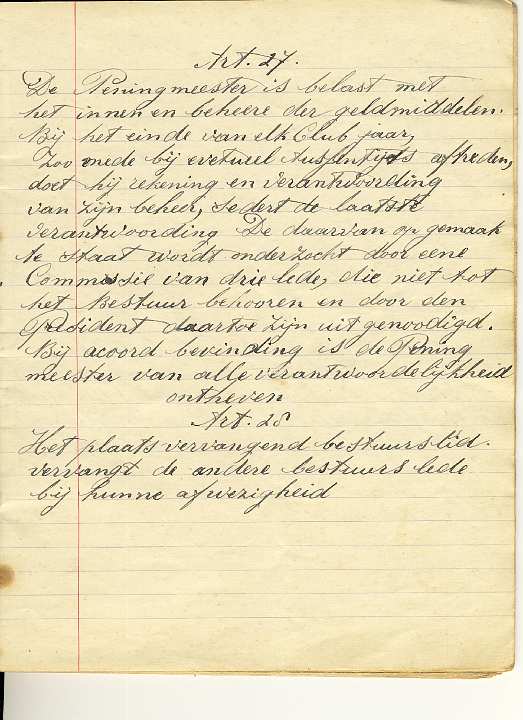 Art. 27.
De Peningmeester is belast met
het innen en beheere der geldmiddelen.
Bij het einde van elk Club jaar,
Zoo mede bij evetueel tussentijds aftreden,
doet hij rekening en verantwoording
van zijn beheer, sedert de laatste
verantwoording De daarvan op gemaak
te Staat wordt onderzocht door eene
Commissie van drie lede, die niet tot
het Bestuur behooren en door den
President daartoe zijn uit genoodigd.
Bij acoord bevinding is de Pening
meester van alle verantwoordelijkheid
ontheven
Art. 28
Het plaats vervangend bestuurslid.
vervangt de andere bestuurs lede
bij hunne afwezigheid